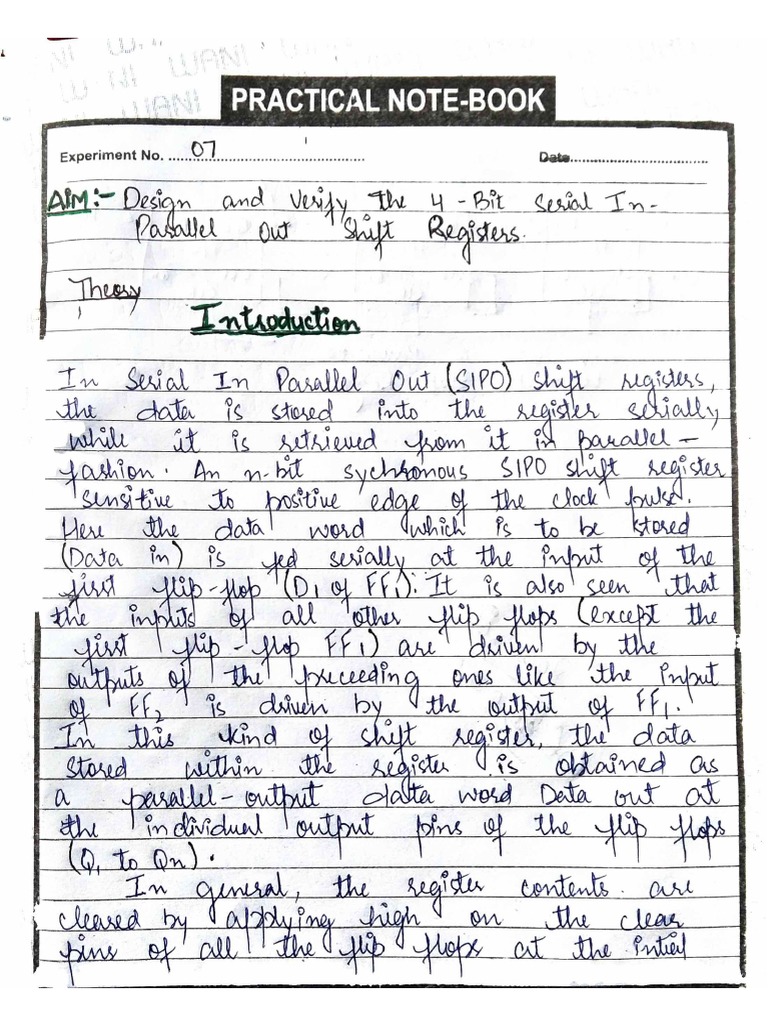 WANI
WANI
PRACTICAL NOTE-BOOK
Experiment No. 07 Date
AIM:- Design and Verify The 4-Bit Serial In-
Parallel Out Shift Registers.
Theory
Introduction
In Serial In Parallel Out (SIPO) shift registers,
the data is stored into the register serially
while it is retrieved from it in parallel-
fashion. An n-bit sychronous SIPO shift register
sensitive to positive edge of the clock pulse.
Here the data word which is to be stored
(Data in) is fed serially at the input of the
first flip-flop (D1 of FF1). It is also seen that
the inputs of all other flip flops (except the
first flip-flop FF1) are driven by the
outputs of the preceeding ones like the input
of FF2 is driven by the output of FF1.
In this kind of shift register, the data
stored within the register is obtained as
a parallel-output data word Data out at
the individual output pins of the flip flops
(Q1 to Qn).
In general, the register contents are
cleared by applying high on the clear
pins of all the flip flops at the